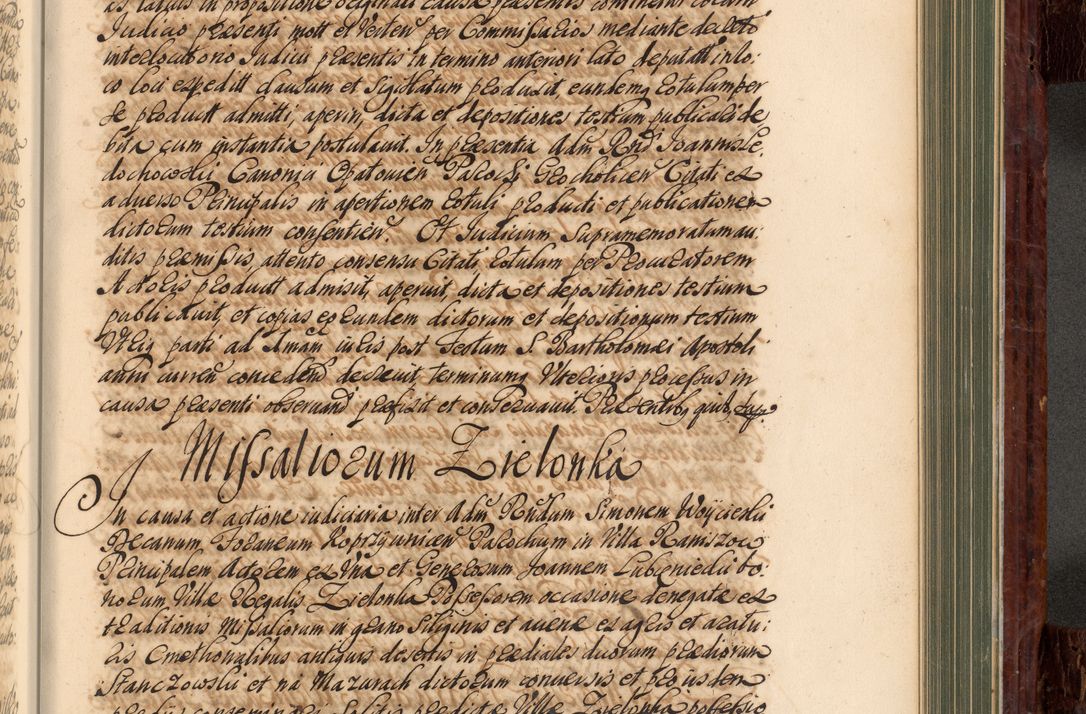 Judicio praesenti mott et Verten per Commissarios mediante decreto
interlocutorio Judicii praesentis in termino anteriori lato deputatt in lo-
co loci expeditt clausum et sigillatum produxit eundemq rotulum per
se productt admitti, aperiri, dicta et depositiones testium publicari de
bita cum instantia postulavit. In praesentia Adm Rnd Joannis Le,
dochowski Canonici Opatovien Parochi Grocholicen Citati ex
adverso Principalis in apertionem rotuli producti et publicationem
dictorum testium consentien. Et Judicium Supramemoratum au
ditis praemissis, attento consensu Citati, rotulum per Procuratorem
Actoris productt admisit, aperuit, dicta et depositiones testium
publicavit, et copias eorundem dictorum et depositionum testium
Utriq parti ad Imam juris post Festum S. Bartholomaei Apostoli
anni curren concedend decrevit, terminumq Ulterioris processus in
causa praesenti observand praefixit et conservavit. Praesentibq quibq supr.
Missaliorum Zielonka
In causa et actione iudiciaria inter Adm Rndum Simonem Woyciecki
Decanum Foraneum Koprzyvnicen Parochum in Villa Ramiszow
Principalem Actorem ex Vna et Generosum Joannem Lubieniecki bo-
norum Villae Regalis Zielonka Possessorem occasione denegatae ex
traditionis Missaliorum in grano Siliginis et avenae ex agris et aratu-
ris Cmethonalibus antiquis desertis in praediales duorum praediorum
Stanczowski et na Mazurach dictorum conversis et pro iisdem